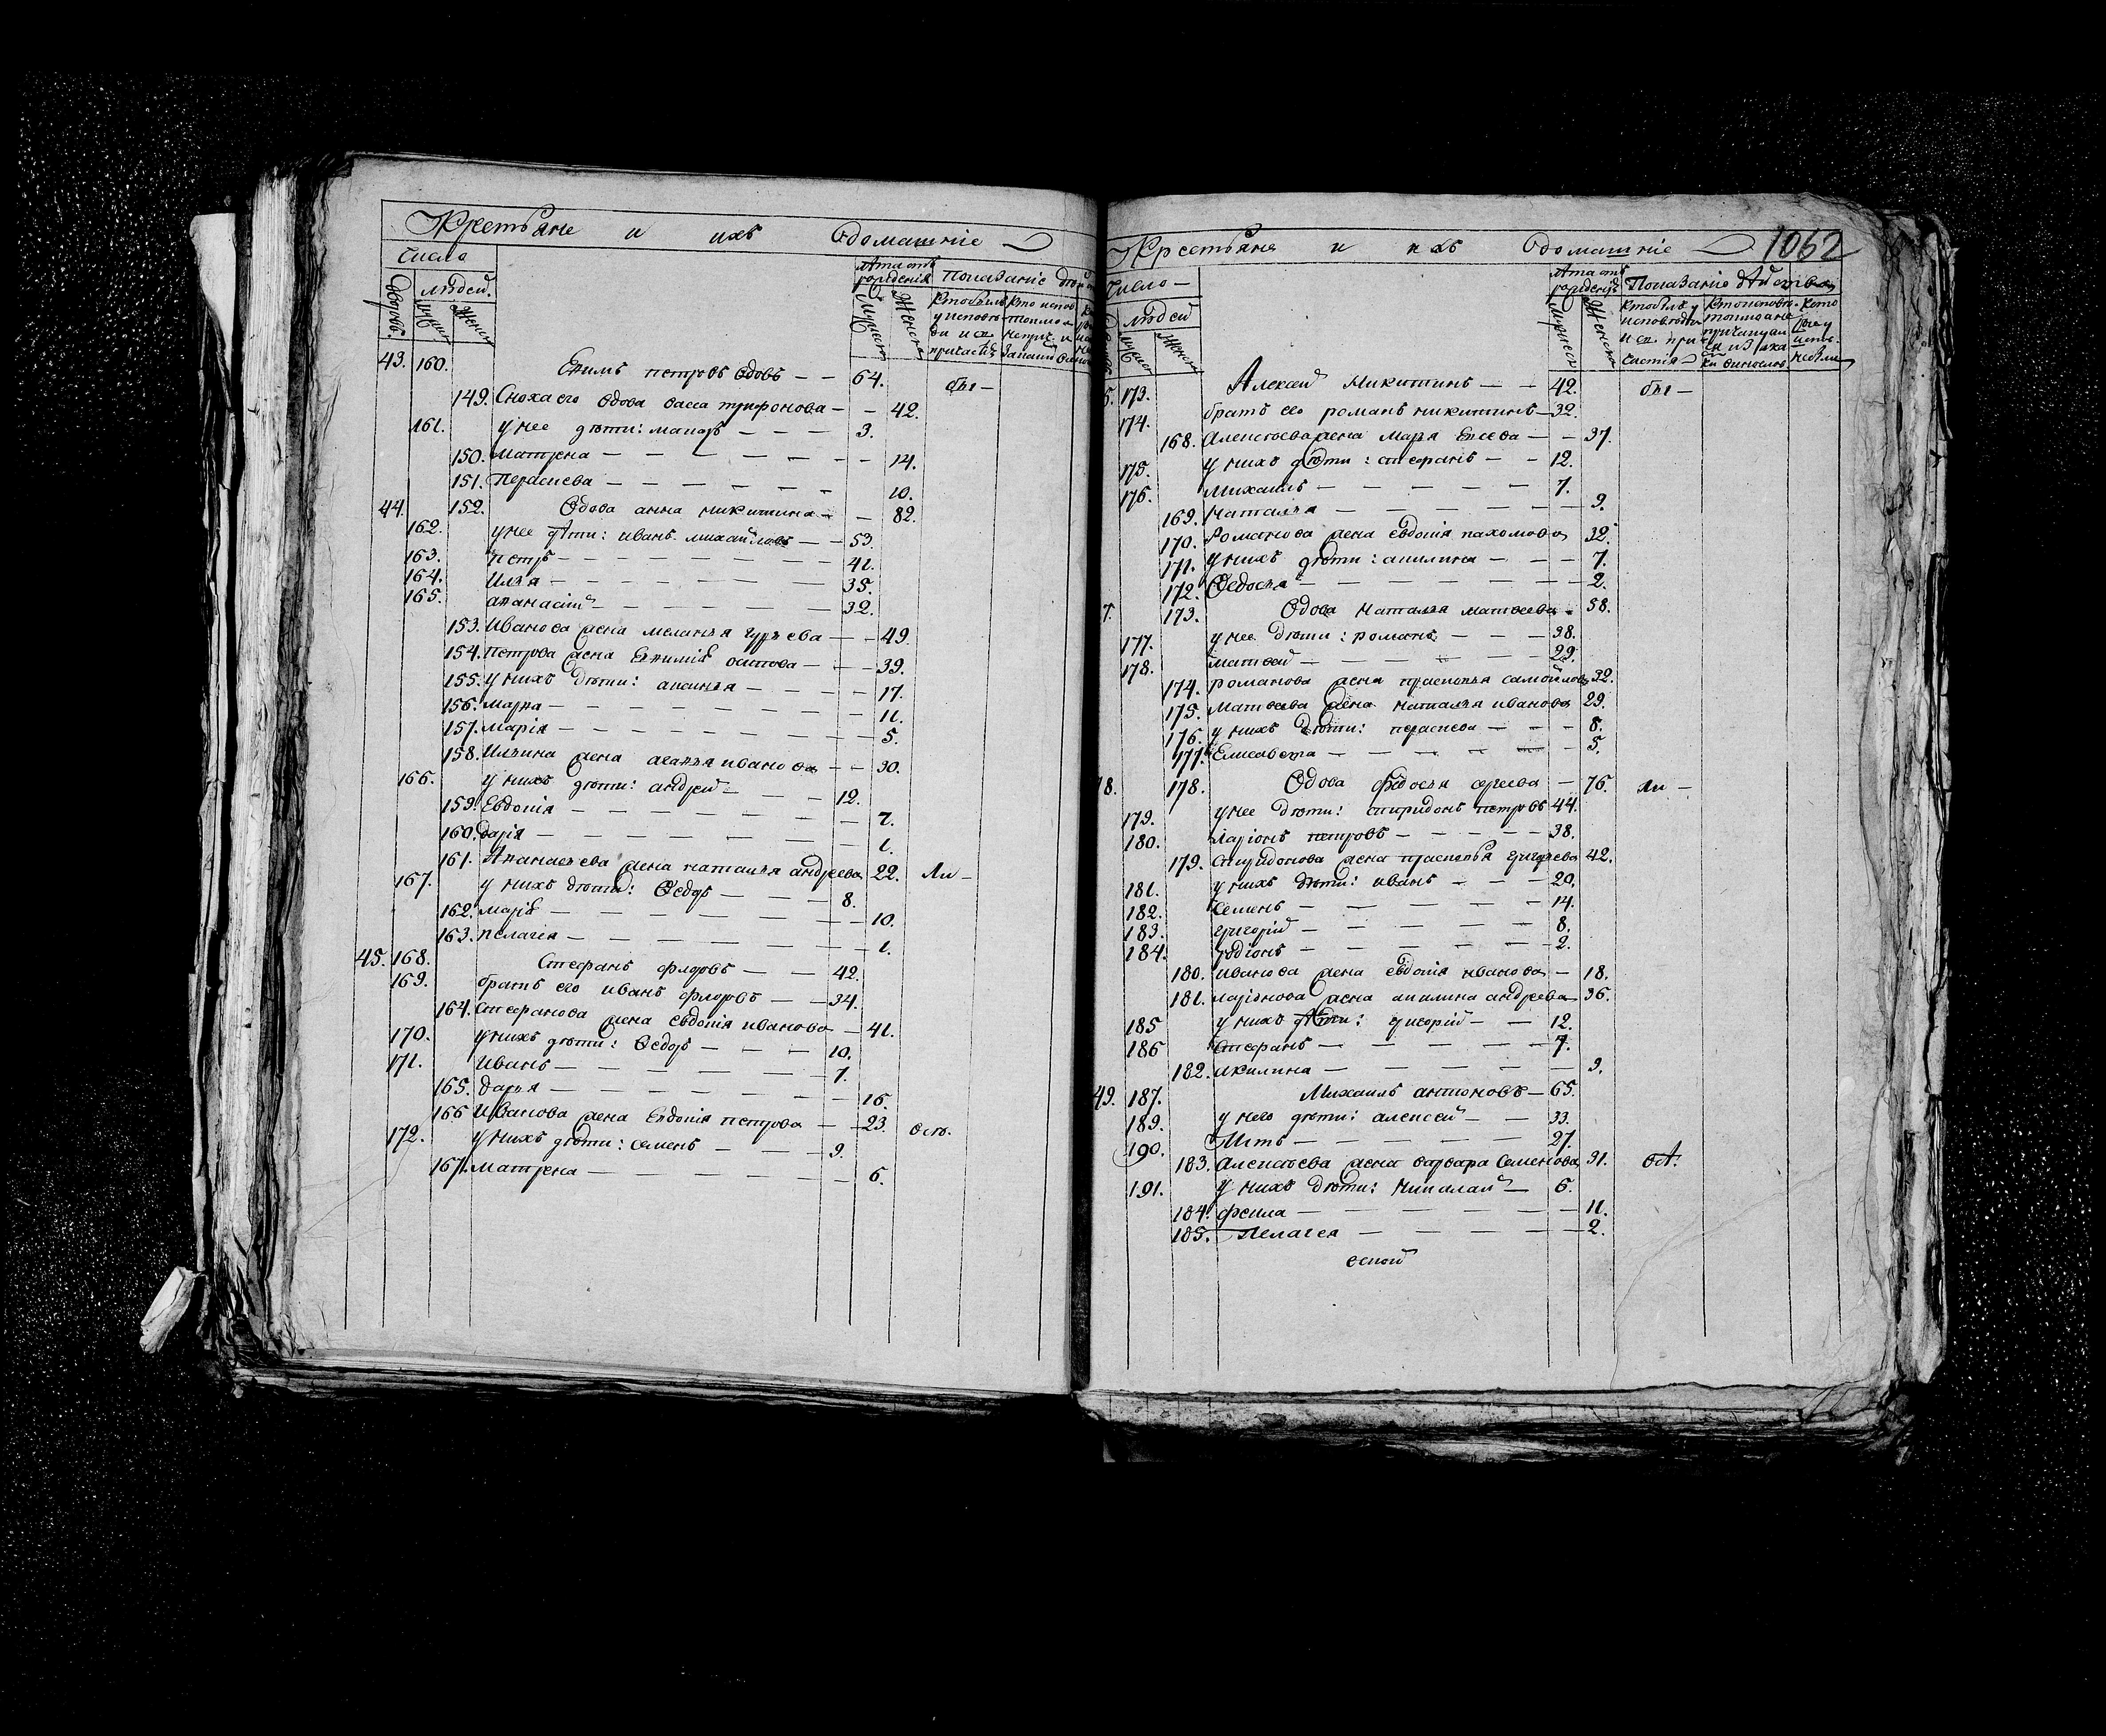 Крестьяне и ихъ домашніе
Число
дворовъ. людей. лѣта отъ рожденія Показаніе
мужеск женск Мужеск Женска
43. 160. Ефимъ петровъ вдовъ — — 64. бы —
149. Сноха его вдова васса трифонова — — 42.
161. у нее дѣти: макаръ — — — 3.
150. Матрена — — — — — — 14.
151. Параскева — — — — — — 10.
44. 152. Вдова анна никитина — — 82.
162. у нее дѣти: иванъ михайловъ — — 53.
163. петръ — — — — — 41.
164. Илья — — — — — 35.
165. афанасій — — — — — 32.
153. Иванова жена меланья гурьева — — 49.
154. Петрова жена Ефимія — — — 39.
155. у нихъ дѣти: аксинья — — — — 17.
156. Марфа — — — — — — 11.
157. Марія — — — — — — 5.
158. Ильина жена агафья иванова — — 30.
166. у нихъ дѣти: андрей — — — 12.
159. Евдокія — — — — — — 7.
160. Дарія — — — — — — 1.
161. Афанасьева жена наталья андреева 22. ли —
167. у нихъ дѣти: Ѳедоръ — — — 8.
162. Марія — — — — — — 10.
163. пелагея — — — — — — 1.
45. 168. Стефанъ флоровъ — — 42.
169. братъ его иванъ флоровъ — — 34.
164. Стефанова жена евдокія иванова — 41.
170. у нихъ дѣти: Ѳедоръ — — — 10.
171. Иванъ — — — — — 7.
165. Дарья — — — — — — 16.
166 Иванова жена Евдокія петрова — — 23. всѣ.
172. у нихъ дѣти: семенъ — — — 9.
167. Матрена — — — — — — 6.
Крестьяня и ихъ домашніе 1062
Число —
людей лѣта отъ рожденія Показаніе дѣйствія
мужеск Женск Мужеск Женска
173. Алексей Никитинъ — — 42. бы —
174. братъ его романъ никитинъ — 32.
168. Алексѣева жена Марья — — 37.
175. у нихъ дѣти: стефанъ — — 12.
176. Михаилъ — — — — — 7.
169. Наталья — — — — — — 9.
170. Романова жена евдокія пахомова 32.
171. у нихъ дѣти: акилина — — — 7.
172. Ѳедосья — — — — — — 2.
173. Вдова Наталья матвеева — 58.
177. у нее дѣти: романъ — — — 38.
178. матвей — — — — — 29.
174. романова жена прасковья самойлова 32.
175. Матвеева жена наталья иванова 29.
176. у нихъ дѣти: параскева — — — 8.
177. Елисавета — — — — — 5.
178. Вдова федосья — 76. ли —
179. у нее дѣти: спиридонъ петровъ 44.
180. ларіонъ петровъ — — — — 38.
179. Спиридонова жена прасковья григорьева 42.
181. у нихъ дѣти: иванъ — — — 20.
182. Семенъ — — — — — 14.
183. григорій — — — — — 8.
184. родіонъ — — — — — 2.
180. Иванова жена евдокія иванова — 18.
181. ларіонова жена акилина андреева 36.
185 у нихъ дѣти: григорій — — 12.
186 Стефанъ — — — — — 7.
182. икилина — — — — — 9.
49. 187. Михаилъ антоновъ — 65.
189. у него дѣти: алексей — — 33.
190. — — — — 27.
183. Алексѣева жена варвара Семенова 31. всѣ.
191. у нихъ дѣти: николай — 6.
184. фекла — — — — — — 11.
185. Пелагея — — — — — 2.